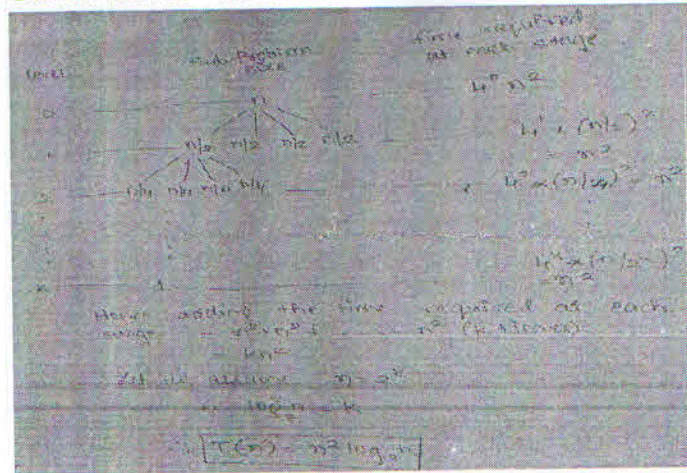 Level Sub Problem size time required at each stage
0 n 4⁰ n²
n/2 n/2 n/2 n/2 4¹ × (n/2)²
= n²
n/4 n/4 n/4 n/4 4² × (n/4)² = n²
k 1 = n²
Hence adding the time required at each
n² + n² + n² (k times)
kn²
Let us assume n = 2ᵏ
log₂n = k
∴ T(n) = n² log₂n